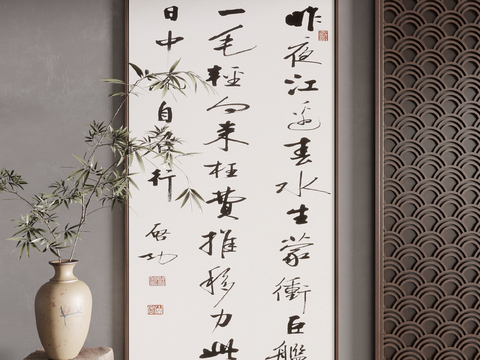 昨夜江邊春水生蒙衝巨艦
一毛輕向来枉費推移力此
日中自在行
啟功